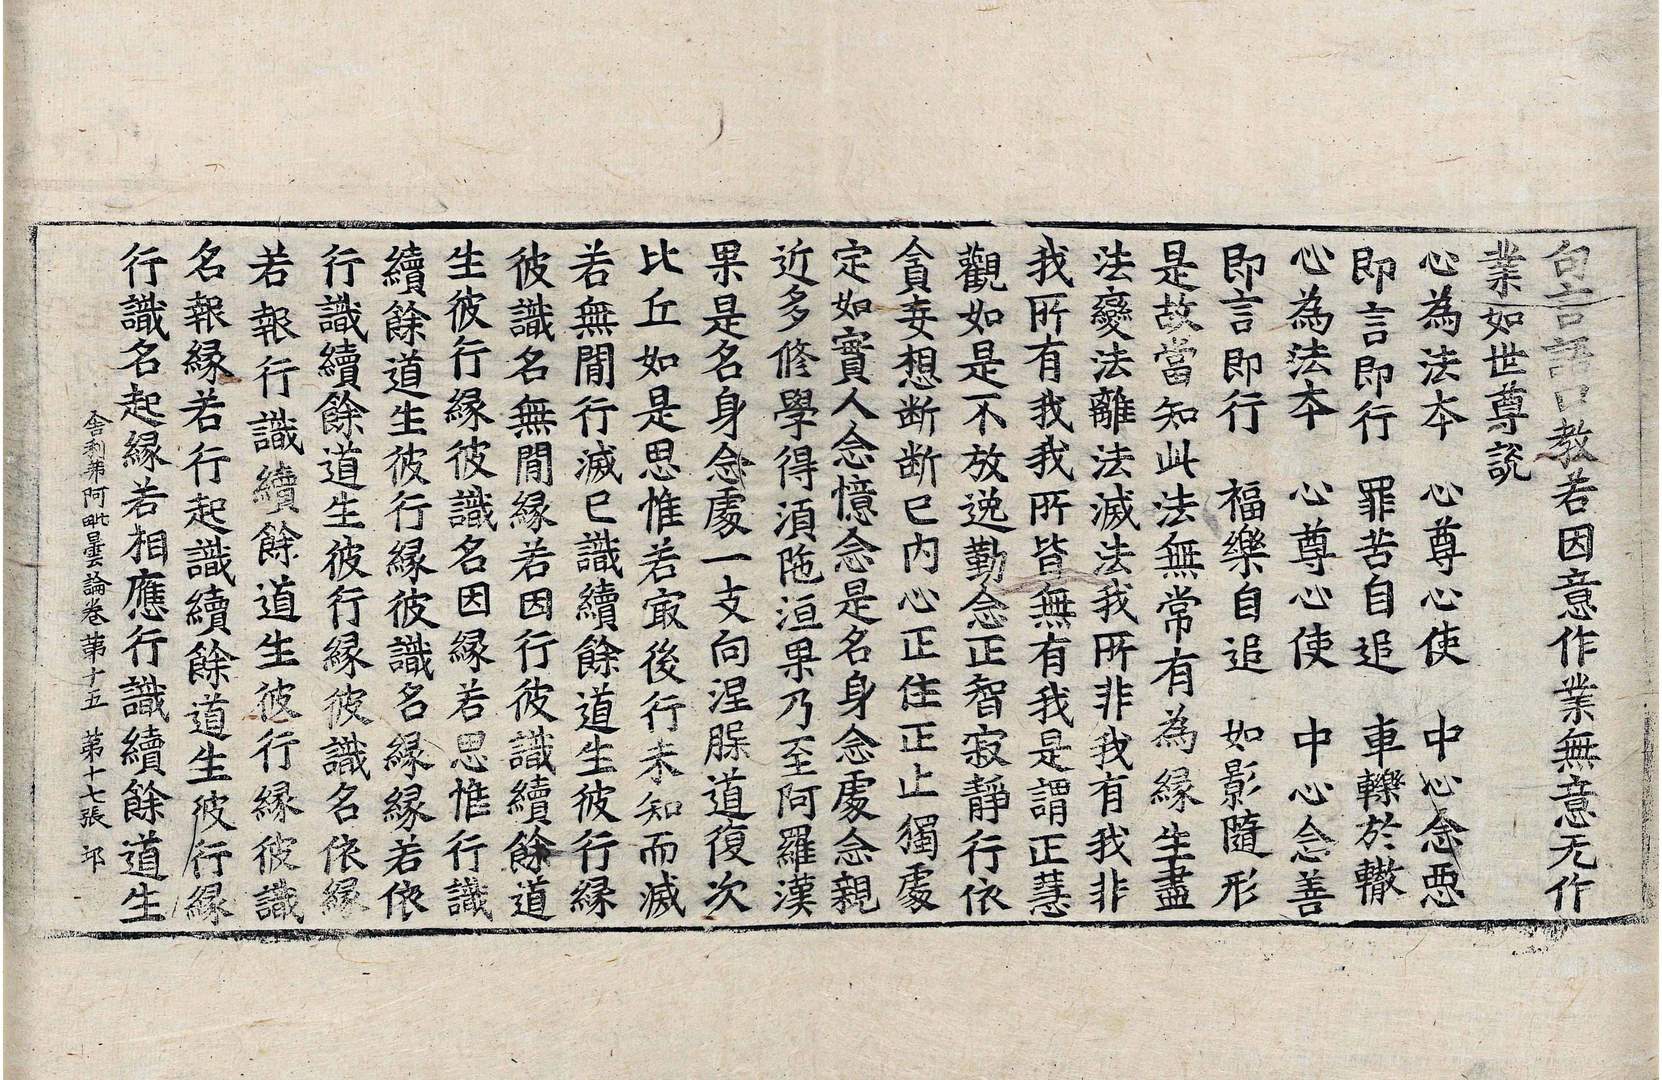 句言語口教若因意作業無意无作
業如世尊說
心為法本　心尊心使　中心念惡
即言即行　罪苦自追　車轢於轍
心為法本　心尊心使　中心念善
即言即行　福樂自追　如影隨形
是故當知此法無常有為緣生盡
法變法離法滅法我所非我有我非
我所有我我所皆無有我是謂正慧
觀如是不放逸勤念正智寂靜行依
貪妄想断断已內心正住正止獨處
定如實人念憶念是名身念處念親
近多修學得湏陁洹果乃至阿羅漢
果是名身念處一支向涅槃道復次
比丘如是思惟若㝡後行未知而滅
若無間行滅已識續餘道生彼行緣
彼識名無間緣若因行彼識續餘道
生彼行緣彼識名因緣若思惟行識
續餘道生彼行緣彼識名緣緣若依
行識續餘道生彼行緣彼識名依緣
若報行識續餘道生彼行緣彼識
名報緣若行起識續餘道生彼行緣
行識名起緣若相應行識續餘道生
舍利弗阿毗曇論卷第十五　第十七張　邛